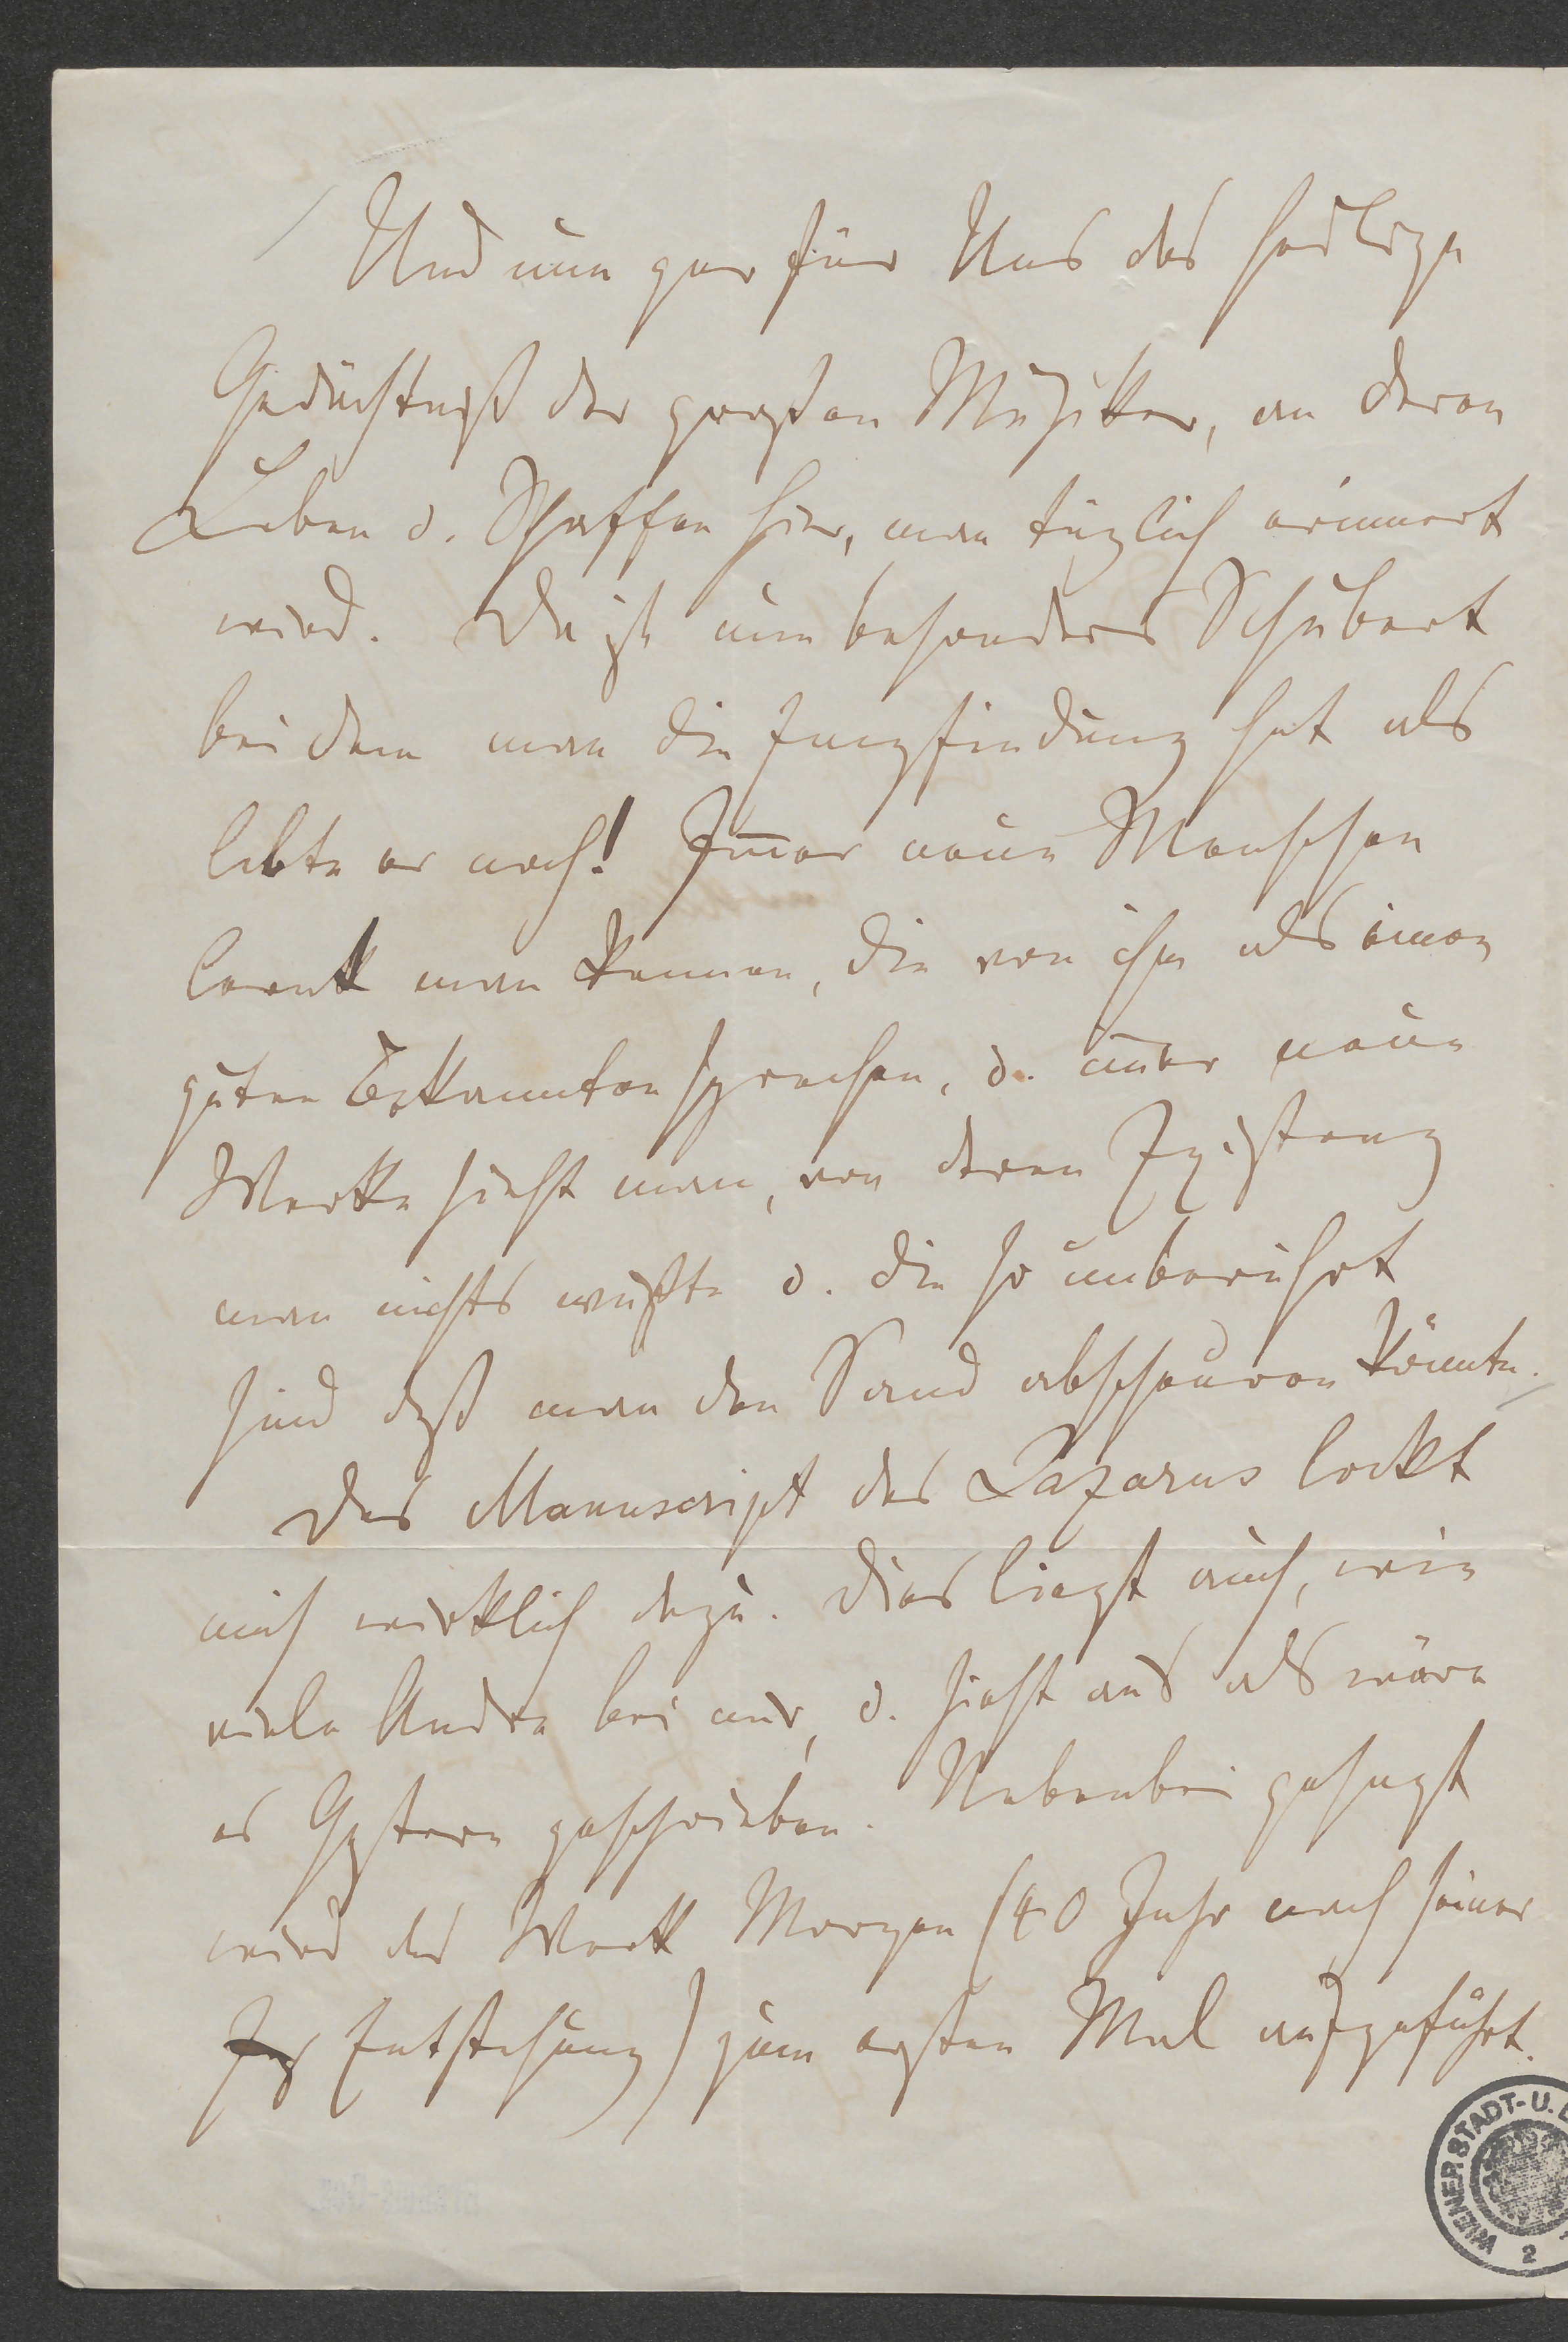 Und nun gar für Uns das heilige
Gedächtniß der großen Musiker, an deren
Leben u. Schaffen hier, man täglich erinnert
wird. Da ist nun besonders Schubert
bei dem man die Empfindung hat als
lebte er noch! Im̄er neue Menschen
lernt man kennen, die von ihm als einen
guten Bekannten sprechen, u. im̄er neue
Werke sieht man, von deren Existenz
man nichts wußte u. die so unberührt
sind daß man den Sand abscheuern könnte.
Das Manuscript des Lazarus lockt
mich wirklich dazu. Dies liegt auch, wie
viele Andre bei mir, u. sieht aus als wäre
es Gestern geschrieben. Nebenbei gesagt
wird das Werk Morgen (40 Jahr nach seiner
Entstehung) zum ersten Mal aufgeführt.
WIENER STADT-U.
2